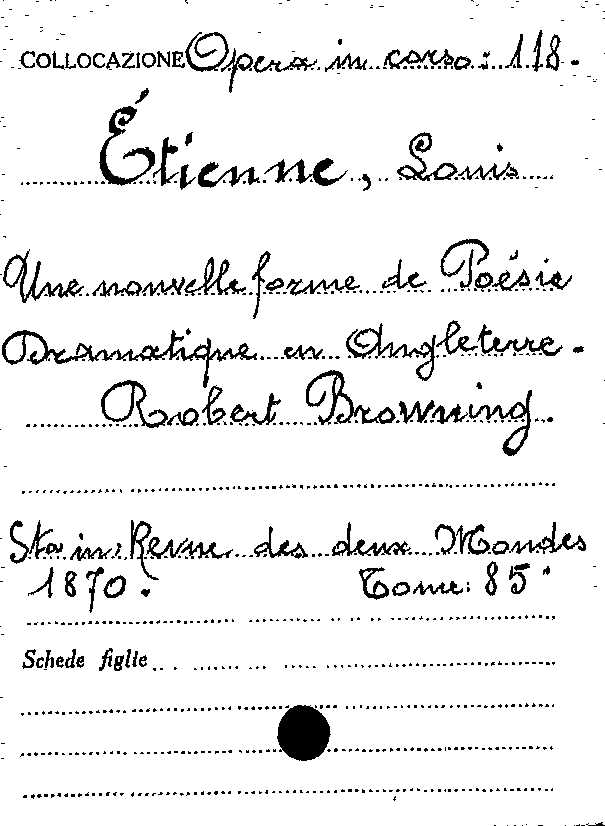 COLLOCAZIONE Opera in corso: 118.
Étienne, Louis
Une nouvelle forme de Poésie
Dramatique en Angleterre.
Robert Browning.
Sta in: Revue des deux Mondes
1870. Tome: 85°
Schede figlie